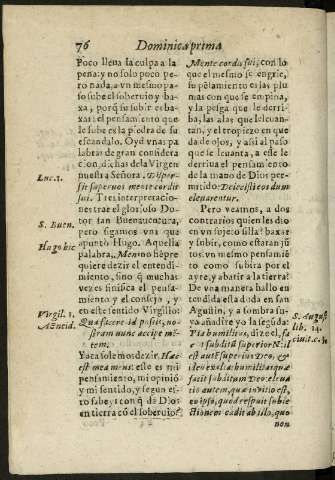 76 Dominica prima
Poco llena la culpa a la
pena: y no solo poco pe-
ro nada, a vn mesmo pa-
so sube el soberuio y ba-
xa, porq̃ su subir es ba-
xar: el pensamiento que
le sube es la piedra de su
escandalo. Oyd vnas pa
labras de gran considera
cion, dichas de la Virgen
nuestra Señora. Disper-
sit superuos mente cordis
sui. Tres interpretacio-
nes trae el glorioso Do-
tor san Buenauentura,
pero sigamos vna que
apuntó Hugo. Aquella
palabra, Men no siẽpre
quiere dezir el entendi-
miento, sino q̃ muchas
vezes sinifica el pensa-
miento y el consejo, y
en este sentido Virgilio:
Qua facere id possit, no-
stram nunc accipe mẽ-
tem.
Y aca solemos dezir. Hæc
est mea mens: este es mi
pensamiento, mi opinió
y mi sentido, y segun es-
to sabe; con q̃ da Dios
en tierra cõ el soberuio?
Luc. 1.
S. Buen.
Hugo hic
Virgil. 1.
Aeneid.
Mente cordis sui, con lo
que el mesmo se engrie,
su pẽsamiento es las plu
mas con que se empina,
y la pesga que le derri-
ba, las alas que le leuan-
tan, y el tropiezo en que
da de ojos, y assi al passo
que le leuanta, a esse le
derriua el pensamiento
de la mano de Dios per-
mitido. Deiecisti eos dum
eleuarentur.
Pero veamos, a dos
contrarios quien les dio
en vn sujeto silla? baxar
y subir, como estaran jũ-
tos, vn mesmo pensamiẽ
to como subira por el
ayre, y abatira al centro?
De vna manera hallo en
san Agustin, y a sombra su-
ya añadire yo la següda:
Pia humilitas, dize el, fa
cit subditũ superiori: ni-
est autẽ superius Deo, &
ideo exaltat humilitas quæ
facit subditum Deo: eleua
tio autem, quæ in vitio est,
eo ipso, quod respuit subie
ctionem cadit ab illo, quo
non
S. Augus
lib. 14.
ciuit. c. 13